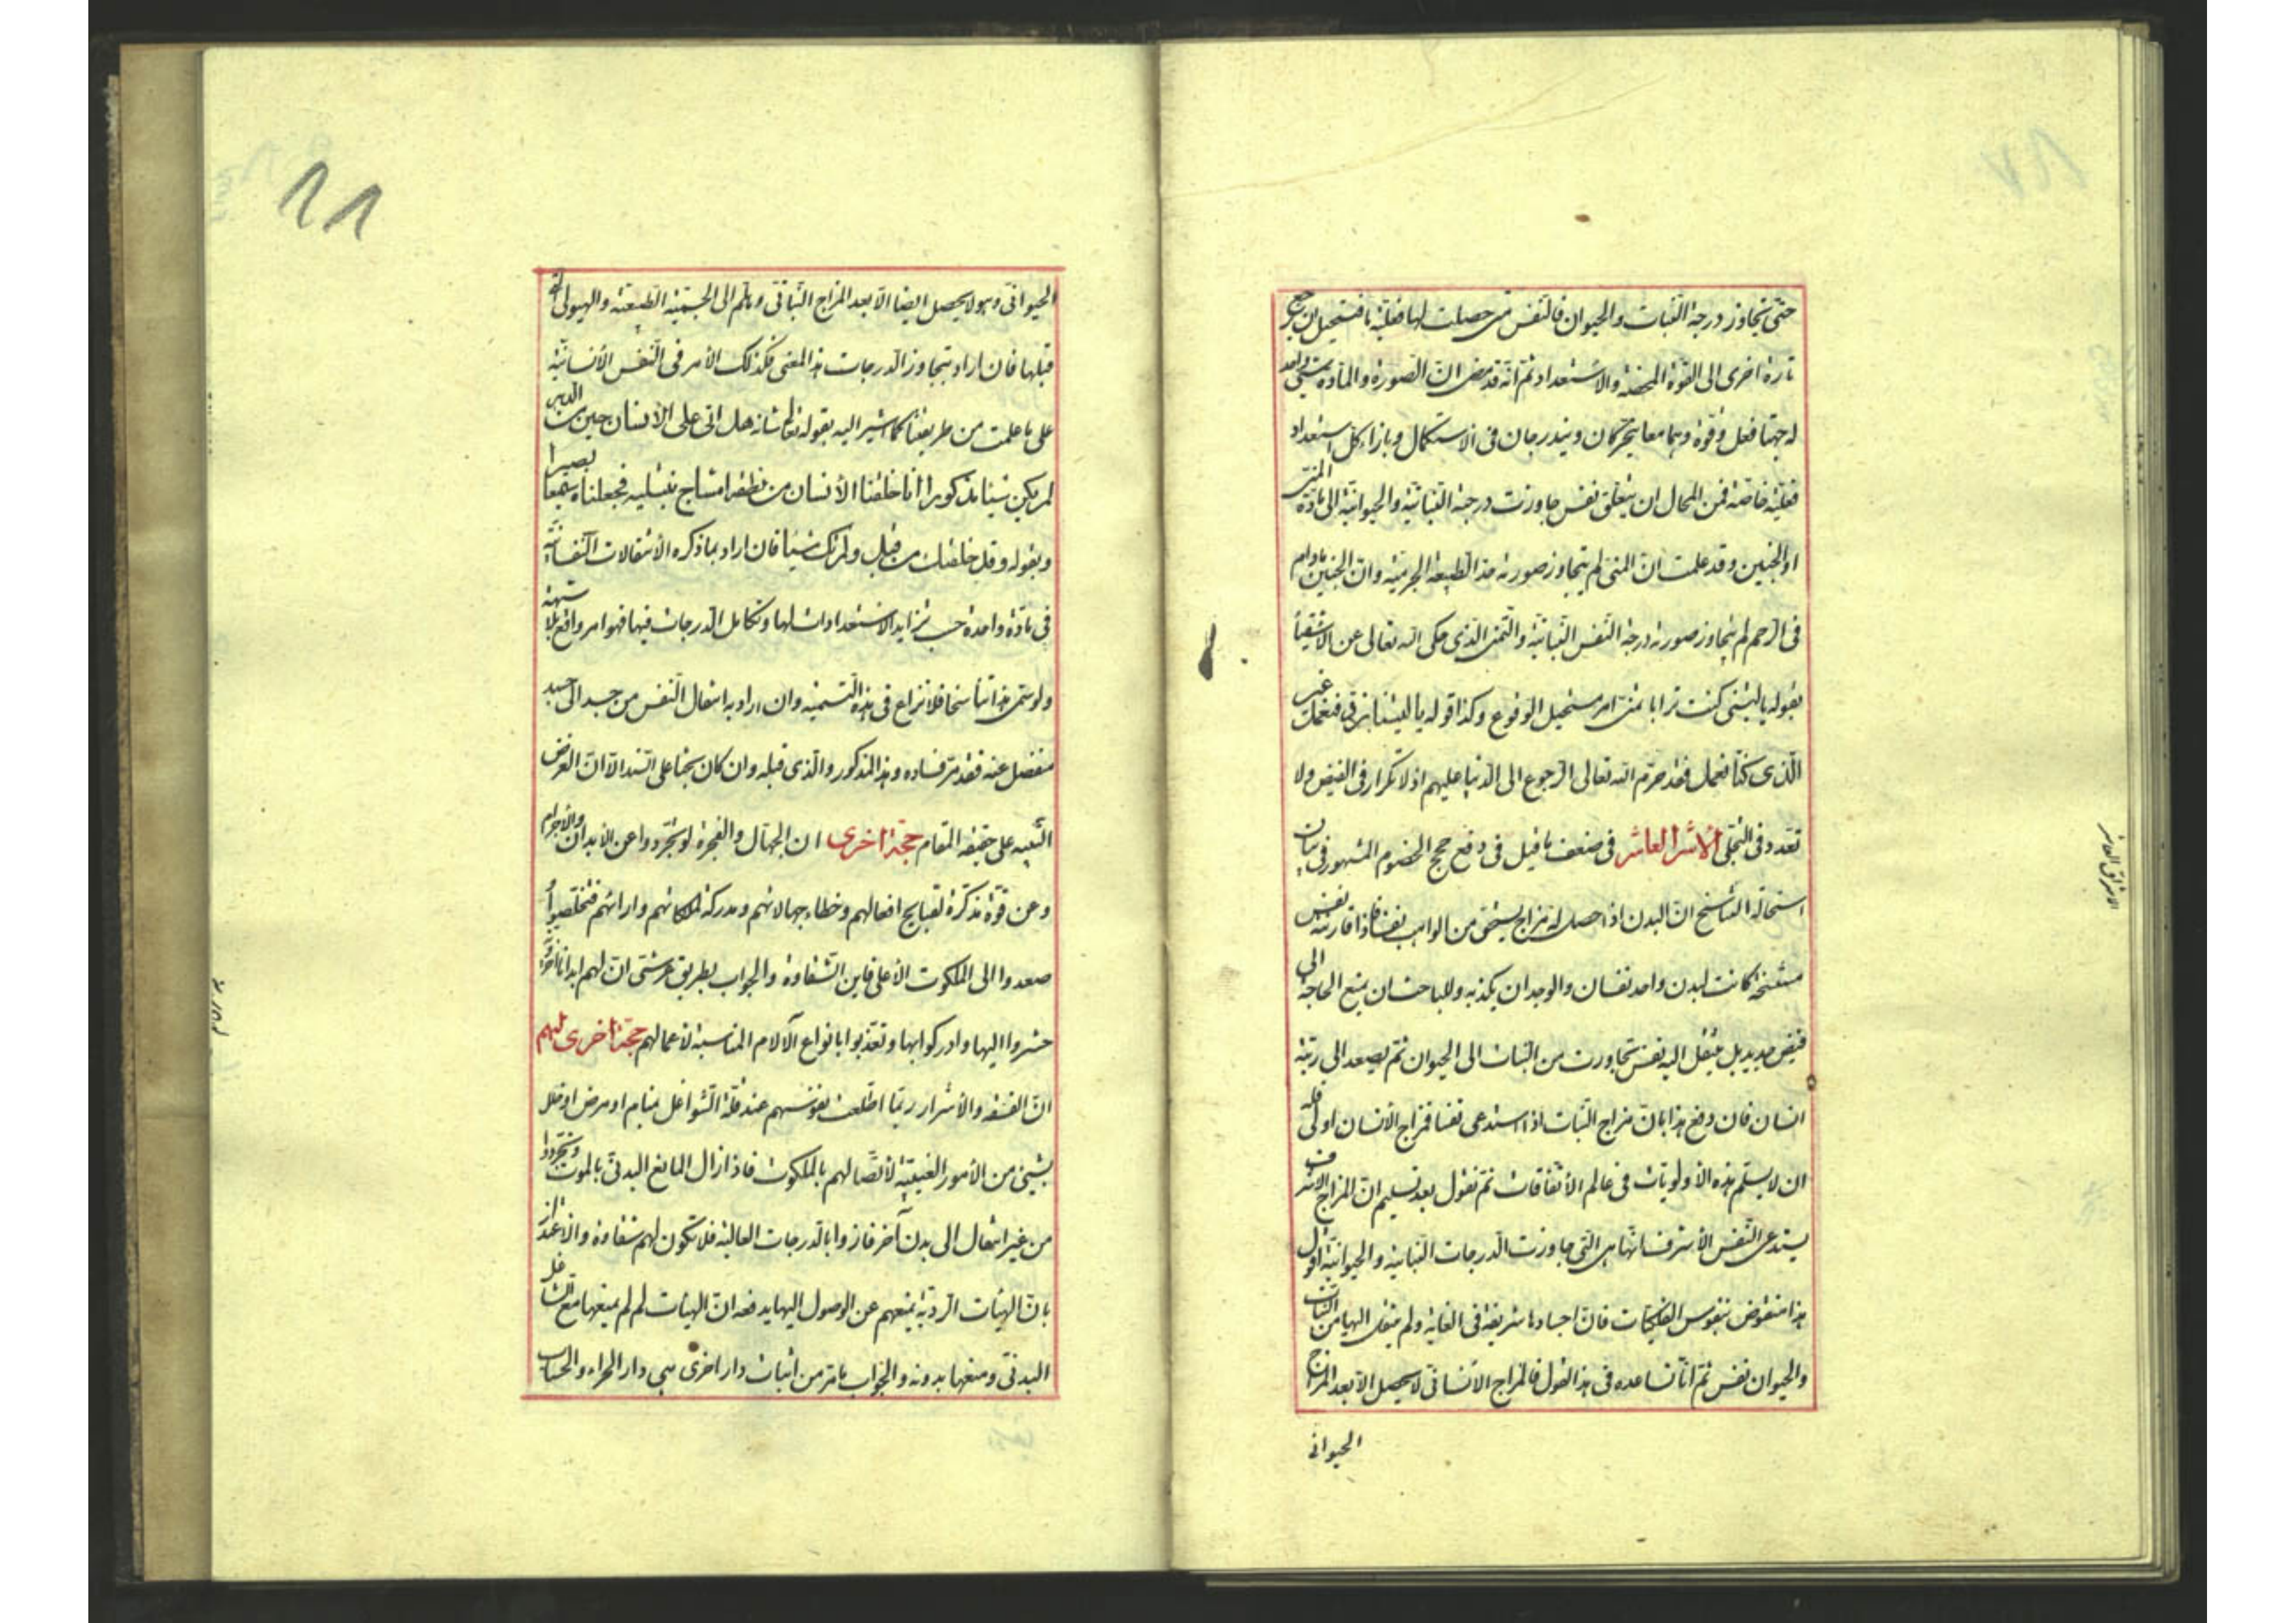 حتى تجاوز درجة النبات والحيوان فالنفس متى حصلت لها فعلية ما فتستحيل ان ترجع
تارة اخرى الى القوة المحضة والاستعداد ثم انه قد مضى ان الصورة والمادة شيئ واحد
له جهتا فعل وقوة وهما معا يتحركان ويتدرجان فى الاستكمال وبازاء كل استعداد
فعلية خاصة فمن المحال ان يتعلق نفس جاوزت درجة النباتية والحيوانية الى مادة المنى
او الجنين وقد علمت ان المنى لم يتجاوز صورته حد الطبيعة الجرمية وان الجنين مادام
فى الرحم لم يتجاوز صورته درجة النفس النباتية والتمنى الذى حكى الله تعالى عن الاشقياء
بقوله يا ليتنى كنت ترابا تمنى امر مستحيل الوقوع وكذا قوله يا ليتنا نرد فنعمل غير
الذى كنا نعمل فقد حرم الله تعالى الرجوع الى الدنيا عليهم اذ لا تكرار فى الفيض ولا
تعدد فى التجلى الاشراق العاشر فى ضعف ما قيل فى دفع حجج الخصوم المشهور فى بيان
استحالة التناسخ ان البدن اذا حصل له مزاج يستحق من الواهب نفسا فاذا قارنته نفس
مستنسخة كانت لبدن واحد نفسان والوجدان يكذبه وللباحث ان يمنع الحاجة الى
فيض جديد بل ينتقل اليه نفس تجاوزت من النبات الى الحيوان ثم يصعد الى رتبة
انسان فان دفع هذا بان مزاج النبات اذا استدعى نفسا فمزاج الانسان اولى فله
ان لا يسلم هذه الاولويات فى عالم الاتفاقات ثم نقول بعد تسليم ان المزاج الاشرف
يستدعى النفس الاشرف انها هى التى جاوزت الدرجات النباتية والحيوانية اقول
هذا منقوض بنفوس الفلكيات فان اجسادها شريفة فى الغاية ولم ينتقل اليها من النبات
والحيوان نفس ثم انا نساعده فى هذا القول فالمزاج الانسانى لا يحصل الا بعد المزاج
الحيوانى
الاشراق العاشر
١١
الحيوانى وهو لا يحصل ايضا الا بعد المزاج النباتى وهلم الى الجسمية الطبيعية والهيولى
قبلها فان اراد بتجاوز الدرجات هذا المعنى فكذلك الامر فى النفس الانسانية
على ما علمت من طريقتنا كما اشير اليه بقوله تعالى شانه هل اتى على الانسان حين من الدهر
لم يكن شيئا مذكورا انا خلقنا الانسان من نطفة امشاج نبتليه فجعلناه سميعا بصيرا
وبقوله وقد خلقتك من قبل ولم تك شيئا فان اراد بما ذكره الانتقالات النفسانية
فى مادة واحدة حسب تزايد الاستعدادات لها وتكامل الدرجات فيها فهو امر واقع بلا شبهة
ولو سمى هذا تناسخا فلا نزاع فى هذه التسمية وان اراد به انتقال النفس من جسد الى جسد
منفصل عنه فقد مر فساده وهذا المذكور والذى قبله وان كان بحثا على السند الا ان الغرض
التنبيه على حقيقة المقام حجة اخرى ان الجهال والفجرة لو تجردوا عن الابدان والاجرام
وعن قوة مذكرة لقبايح افعالهم وخطاء جهالاتهم ومدركة لملكاتهم وارائهم فتخلصوا و
صعدوا الى الملكوت الاعلى فاين الشقاوة والجواب بطريق عرشى ان لهم ابدانا اخروية
حشروا اليها وادركوا بها وتعذبوا بانواع الآلام المناسبة لاعمالهم حجة اخرى لهم
ان الفسقة والاشرار ربما اطلعت نفوسهم عند قلة الشواغل لمنام او مرض او خلل
بشيئ من الأمور الغيبية لاتصالهم بالملكوت فاذا زال المانع البدنى بالموت وتجردوا
من غير انتقال الى بدن آخر فازوا بالدرجات العالية فلا تكون لهم شقاوة والاعتذار
بان الهيئات الردية يمنعهم عن الوصول اليها يدفعه ان الهيئات لم لم يمنعها مع الشاغل
البدنى ومنعها بدونه والجواب بما مر من اثبات دار اخرى هى دار الجزاء والحساب